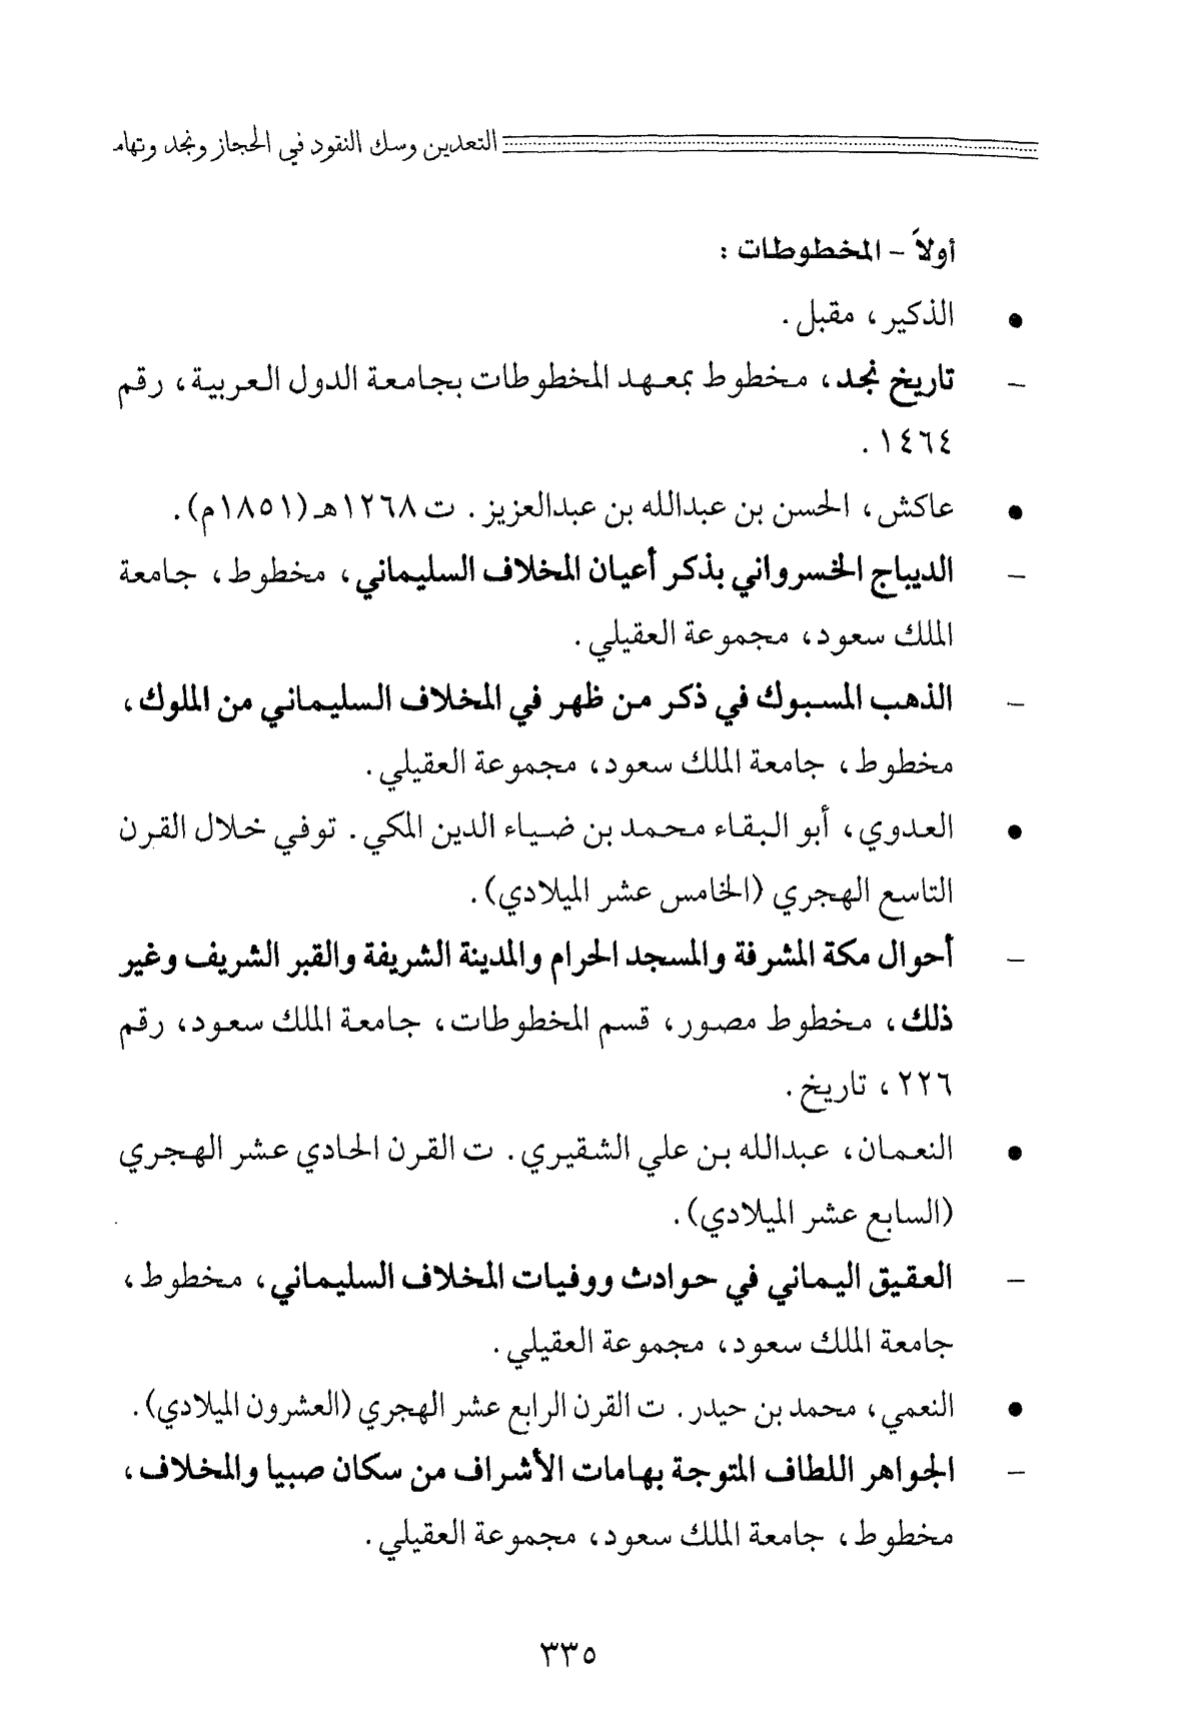 التعدين وسك النقود في الحجاز ونجد وتهام
أولاً - المخطوطات :
• الذكير، مقبل.
- تاريخ نجد، مخطوط بمعهد المخطوطات بجامعة الدول العربية، رقم
١٤٦٤ .
• عاكش، الحسن بن عبدالله بن عبدالعزيز. ت ١٢٦٨هـ (١٨٥١م).
- الديباج الخسرواني بذكر أعيان المخلاف السليماني، مخطوط، جامعة
الملك سعود، مجموعة العقيلي.
- الذهب المسبوك في ذكر من ظهر في المخلاف السليماني من الملوك،
مخطوط، جامعة الملك سعود، مجموعة العقيلي.
• العدوي، أبو البقاء محمد بن ضياء الدين المكي. توفي خلال القرن
التاسع الهجري (الخامس عشر الميلادي).
- أحوال مكة المشرفة والمسجد الحرام والمدينة الشريفة والقبر الشريف وغير
ذلك، مخطوط مصور، قسم المخطوطات، جامعة الملك سعود، رقم
٢٢٦، تاريخ.
• النعمان، عبدالله بن علي الشقيري. ت القرن الحادي عشر الهجري
(السابع عشر الميلادي).
- العقيق اليماني في حوادث ووفيات المخلاف السليماني، مخطوط،
جامعة الملك سعود، مجموعة العقيلي.
• النعمي، محمد بن حيدر. ت القرن الرابع عشر الهجري (العشرون الميلادي).
- الجواهر اللطاف المتوجة بهامات الأشراف من سكان صبيا والمخلاف،
مخطوط، جامعة الملك سعود، مجموعة العقيلي.
٣٣٥